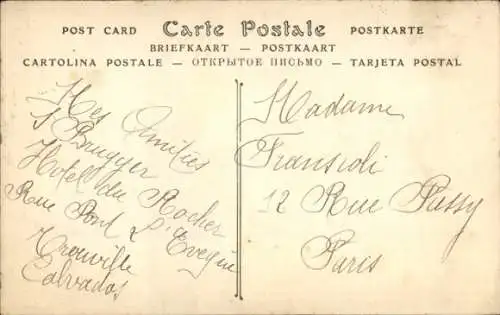 POST CARD Carte Postale POSTKARTE
BRIEFKAART — POSTKAART
CARTOLINA POSTALE — ОТКРЫТОЕ ПИСЬМО — TARJETA POSTAL
Mes Amitiés
S Brugger
Hotel du Rocher
Rue Pont L'Eveque
Trouville
Calvados
Madame
Fransioli
12 Rue Passy
Paris